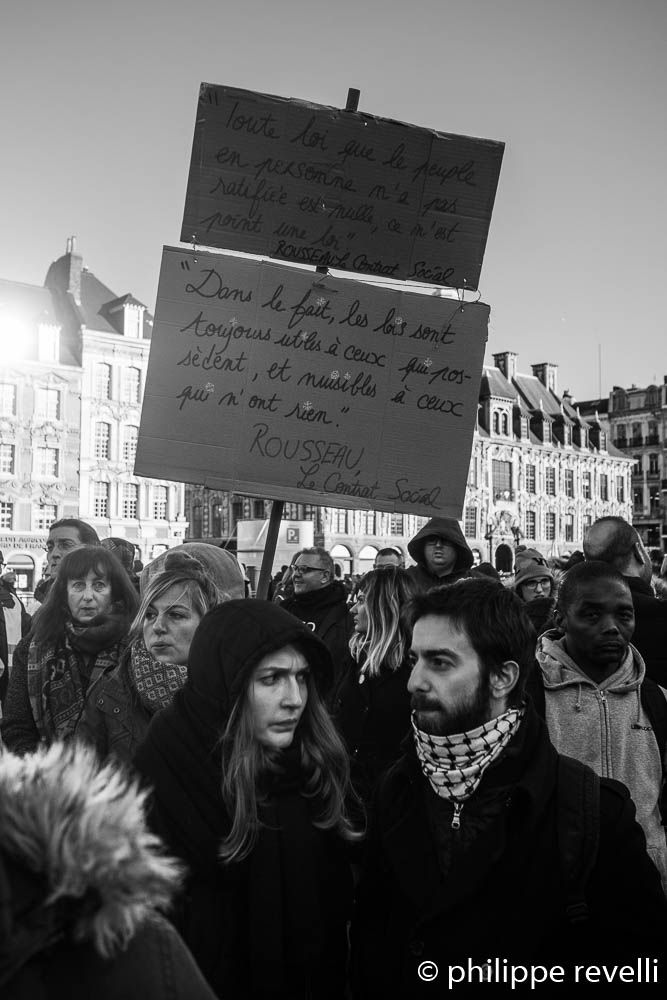 "Toute loi que le peuple
en personne n'a pas
ratifiée est nulle, ce n'est
point une loi"
ROUSSEAU Le Contrat Social
"Dans le fait, les lois sont
toujours utiles à ceux qui pos-
sèdent, et nuisibles à ceux
qui n'ont rien."
ROUSSEAU,
Le Contrat Social
P
© philippe revelli